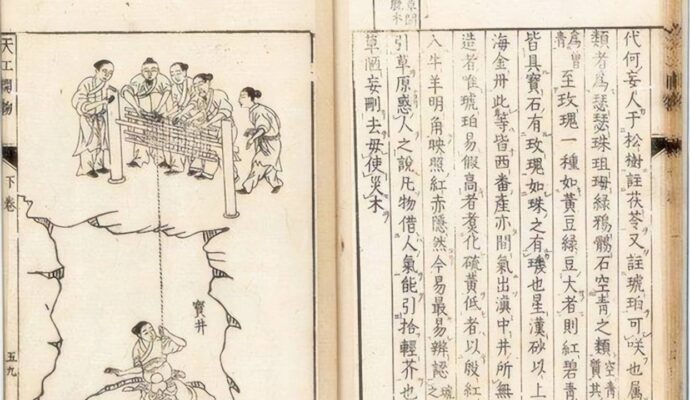 代何妄人于松樹註茯苓又註琥珀可咲也属
類者為瑟瑟珠珇珊緑鴉鶻石空青之類空青質其
為曾青至玫瑰一種如黄豆緑豆大者則紅碧青
皆具寶石有玫瑰如珠之有璣也星漢砂以上
海金丹此等皆西番産亦間氣出滇中井所無
造者唯琥珀易假高者煮化硫黄低者以殷紅
入牛羊明角映照紅赤隱然今易最易辨認
引草原惑人之説凡物借人氣能引拾輕芥也
草陋妄刪去毋使災木
天工開物
下卷
五九
寶井